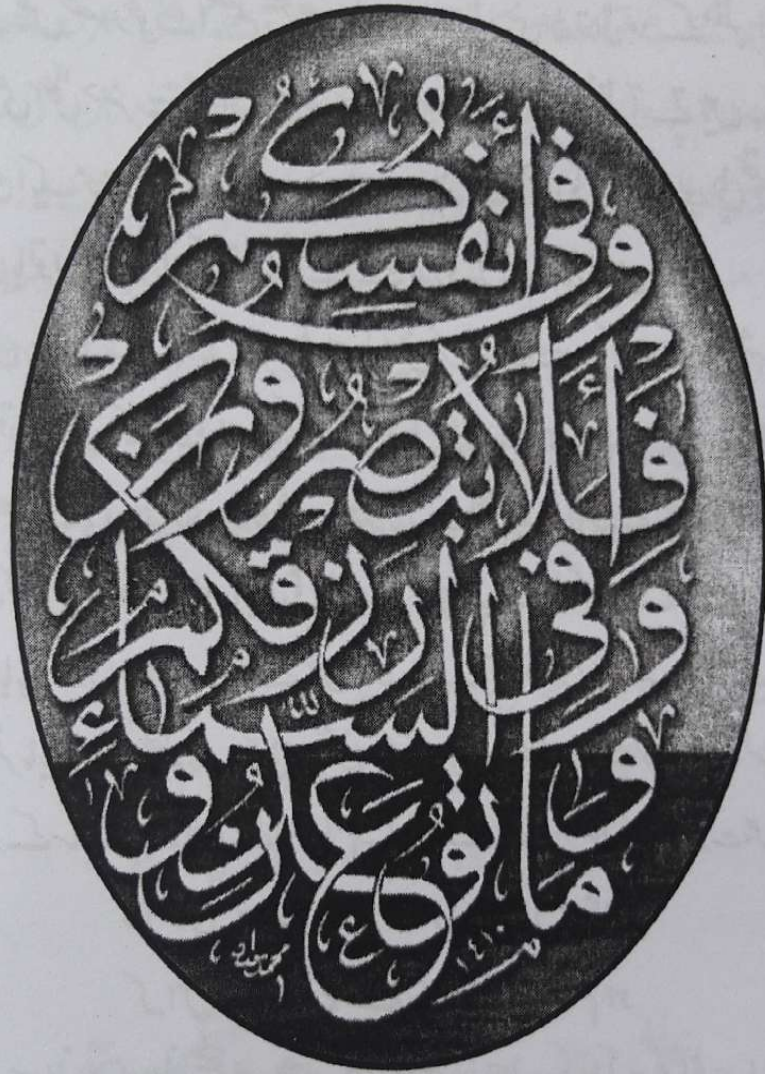 وَفِىٓ أَنفُسِكُمْ
أَفَلَا تُبْصِرُونَ
وَفِى السَّمَآءِ رِزْقُكُمْ
وَمَا تُوعَدُونَ
١٤١٠